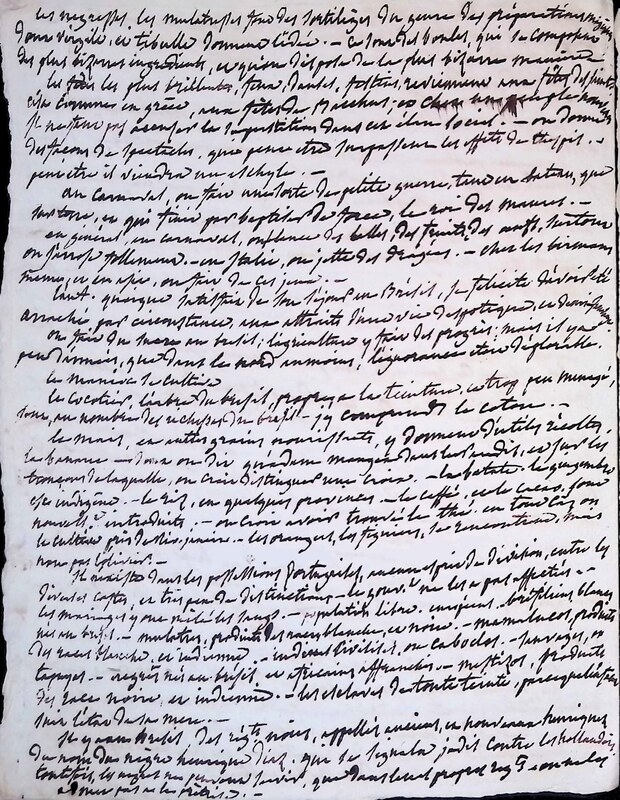 les negresses, les mulatresses font des sortilèges du genre des préparations
dont virgile, et tibulle donnent l'idée. - ce sont des boules, qui se composent
des plus bizarres ingrediens, et qu'on dispose de la plus bizarre manière
les plus brillantes, jeux, danses, festins, reviennent aux fêtes des
comme en grèce, aux fêtes de Bacchus; et
Il ne faut pas accuser la superstition dans ces élans locaux. - on donne
des façons de spectacles, qui peuvent être surpassent les effets de thespis. -
peut etre il viendra un eschyle. -
au carnaval, on fait une sorte de petite guerre, tant en bateau, que
sur terre, et qui finit par baptiser de force, le roi des maures. -
en général, au carnaval, on lance des balles, des fruits, des oeufs, surtout
on s'arrose follement. - en Italie, on jette des dragées. - chez les birmans
memes, et en asie, on fait de ces jeux. -
quoique satisfait de son séjour au Brésil, se felicite d'avoir été
arraché par circonstance, aux attraits d'une vie despotique, et
on fait du sucre au bresil; l'agriculture y fait des progrès; mais il y a
peu d'années, que dans le nord au moins, l'ignorance etoit déplorable.
le manioc se cultive
le cocotier, l'arbre du bresil, propre à la teinture, et trop peu menagé,
sont, au nombre des richesses du bresil - j'y comprends le coton. -
le mais, et autres grains nourrissants, y donnent d'utiles récoltes,
la banane - dont on dit qu'adam mangea dans les jardins, et sur les
troncons de laquelle, on croit distinguer une croix. - la batate. le gingembre
est indigène. - le riz, en quelques provinces. - le caffé, et le cacao, sont
nouvellt introduits. - on croit avoir trouvé le thé. en tout cas on
le cultive près de Rio-janeiro. - les oranges, les figuiers, se rencontrent, mais
non pas l'olivier. -
Il n'existe dans les possessions Portugaises, aucun esprit de division, entre les
diverses castes, et très peu de distinctions. - le gouvt ne les a pas affectées. -
les mariages y ont mêlé les sangs. - population libre. européens. brésiliens blancs
nés au bresil. - mulatres, produits des races blanche, et noire. - mamalucos, produits
des races blanche, et indienne. - indiens civilisés, ou caboclos. - sauvages, ou
tapuyas. - negres nés au bresil, et africains affranchis. - mestizos, produits
des race noire, et indienne. - les esclaves de toute teinte, parce que l'enfant
suit l'état de sa mere. -
Il y a au bresil des régts noirs, appellés anciens, et nouveaux henriques
du nom du nègre henrique diaz, qui se signala jadis contre les hollandois
toutefois, les negres ne peuvent servir, que dans leurs propres régts - on ne les
admet pas à la prêtrise. -